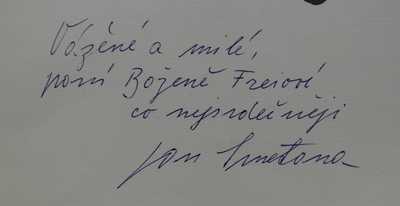 Vážené a milé,
paní Boženě Freiové
co nejsrdečněji
Jan Smetana